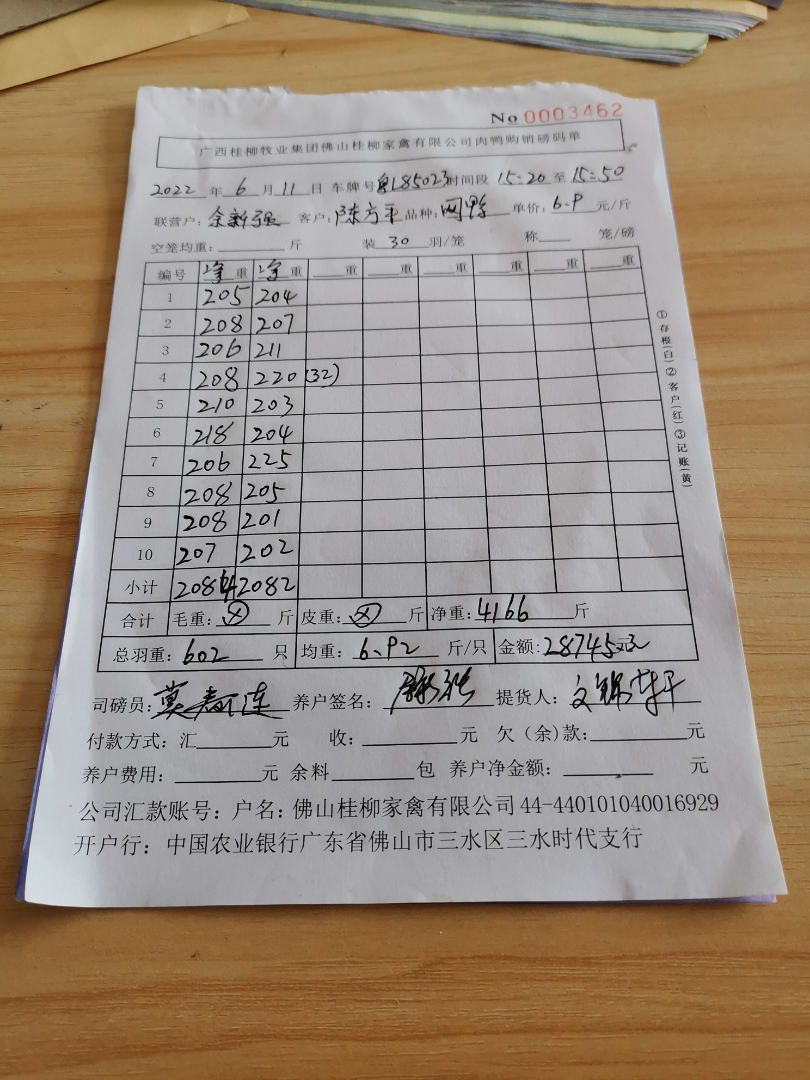 No 0003462
广西桂柳牧业集团佛山桂柳家禽有限公司肉鸭购销磅码单
2022 年 6 月 11 日 车牌号 185023 时间段 15:20 至 15:50
联营户: 余新强 客户: 陈方平 品种: 网鸭 单价: 6.9 元/斤
空笼均重: 斤 装 30 羽/笼 称 笼/磅
编号 净重 净重 重 重 重 重 重 重
1 205 204
2 208 207
3 206 211
4 208 220 (32)
5 210 203
6 218 204
7 206 225
8 208 205
9 208 201
10 207 202
小计 2084 2082
合计 毛重: ⊗ 斤 皮重: ⊗ 斤 净重: 4166 斤
总羽重: 602 只 均重: 6.92 斤/只 金额: 28745元
司磅员: 莫 连 养户签名: 提货人: 文
付款方式: 汇 元 收: 元 欠(余)款: 元
养户费用: 元 余料 包 养户净金额: 元
公司汇款账号: 户名: 佛山桂柳家禽有限公司 44-440101040016929
开户行: 中国农业银行广东省佛山市三水区三水时代支行
①存根(白)②客户(红)③记账(黄)